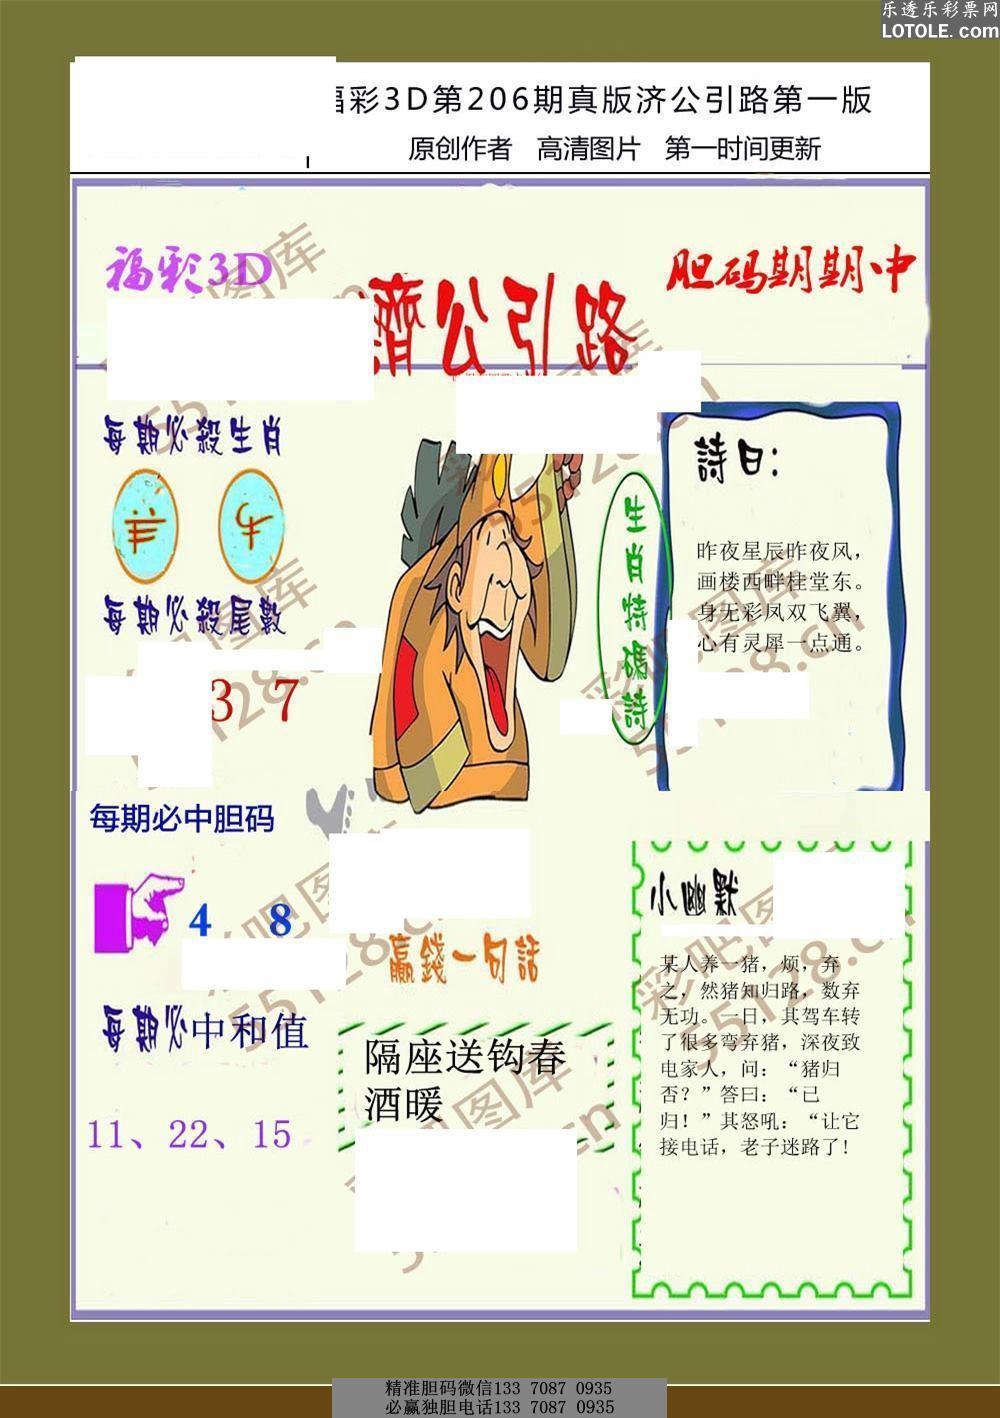 乐透乐彩票网
LOTOLE.com
福彩3D第206期真版济公引路第一版
原创作者 高清图片 第一时间更新
福彩3D
胆码期期中
濟公引路
每期必殺生肖
羊 牛
每期必殺尾數
3 7
每期必中胆码
4 8
每期必中和值
11、22、15
生肖特碼詩
詩曰：
昨夜星辰昨夜风，
画楼西畔桂堂东。
身无彩凤双飞翼，
心有灵犀一点通。
赢錢一句話
隔座送钩春
酒暖
小幽默
某人养一猪，烦，弃
之，然猪知归路，数弃
无功。一日，其驾车转
了很多弯弃猪，深夜致
电家人，问：“猪归
否？”答曰：“已
归！”其怒吼：“让它
接电话，老子迷路了!
彩吧图库
55128.cn
精准胆码微信133 7087 0935
必赢独胆电话133 7087 0935